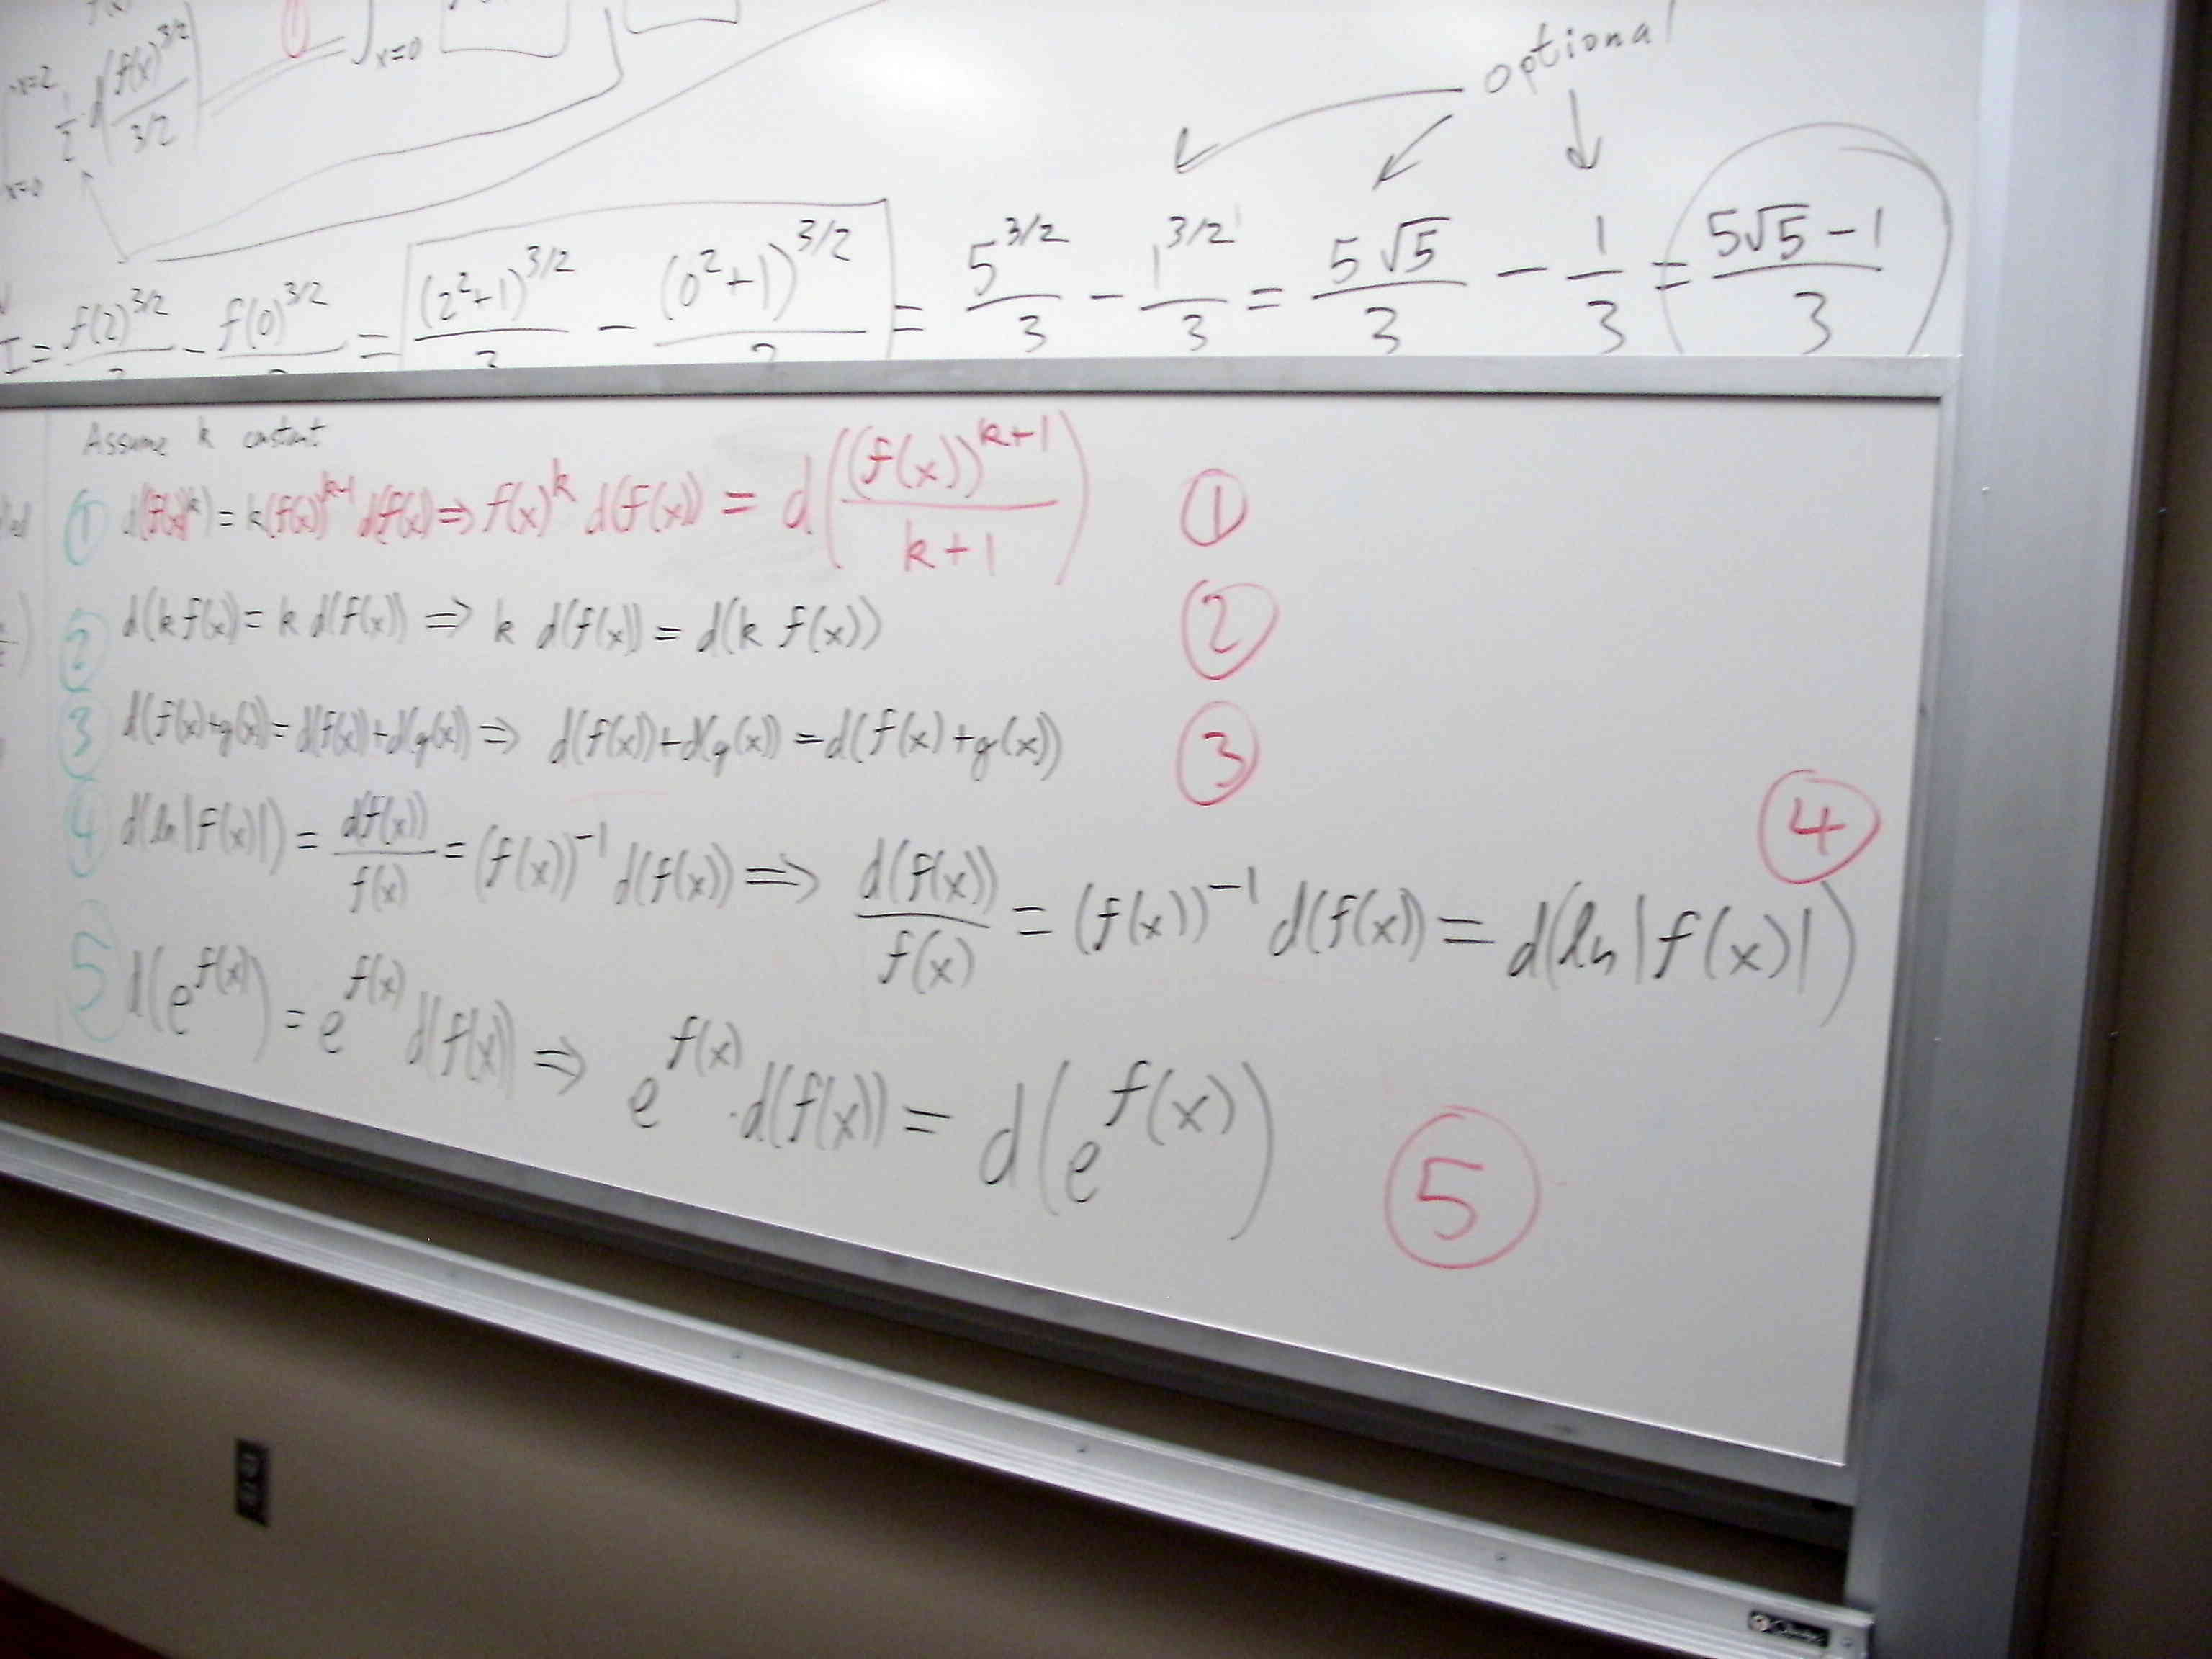 x=2 1/2 · d(f(x)^3/2 / 3/2) ① ∫ x=0
x=0
optional
I = f(2)^3/2 - f(0)^3/2 = (2²+1)^3/2 / 3 - (0²+1)^3/2 = 5^3/2 / 3 - 1^3/2 / 3 = 5√5 / 3 - 1/3 = 5√5 - 1 / 3
Assume k constant
① d(f(x)^k) = k(f(x))^k-1 d(f(x)) ⇒ f(x)^k d(f(x)) = d((f(x))^k+1 / k+1) ①
② d(k f(x)) = k d(f(x)) ⇒ k d(f(x)) = d(k f(x)) ②
③ d(f(x)+g(x)) = d(f(x))+d(g(x)) ⇒ d(f(x))+d(g(x)) = d(f(x)+g(x)) ③
④ d(ln|f(x)|) = d(f(x)) / f(x) = (f(x))^-1 d(f(x)) ⇒ d(f(x)) / f(x) = (f(x))^-1 d(f(x)) = d(ln|f(x)|) ④
⑤ d(e^f(x)) = e^f(x) d(f(x)) ⇒ e^f(x) · d(f(x)) = d(e^f(x)) ⑤